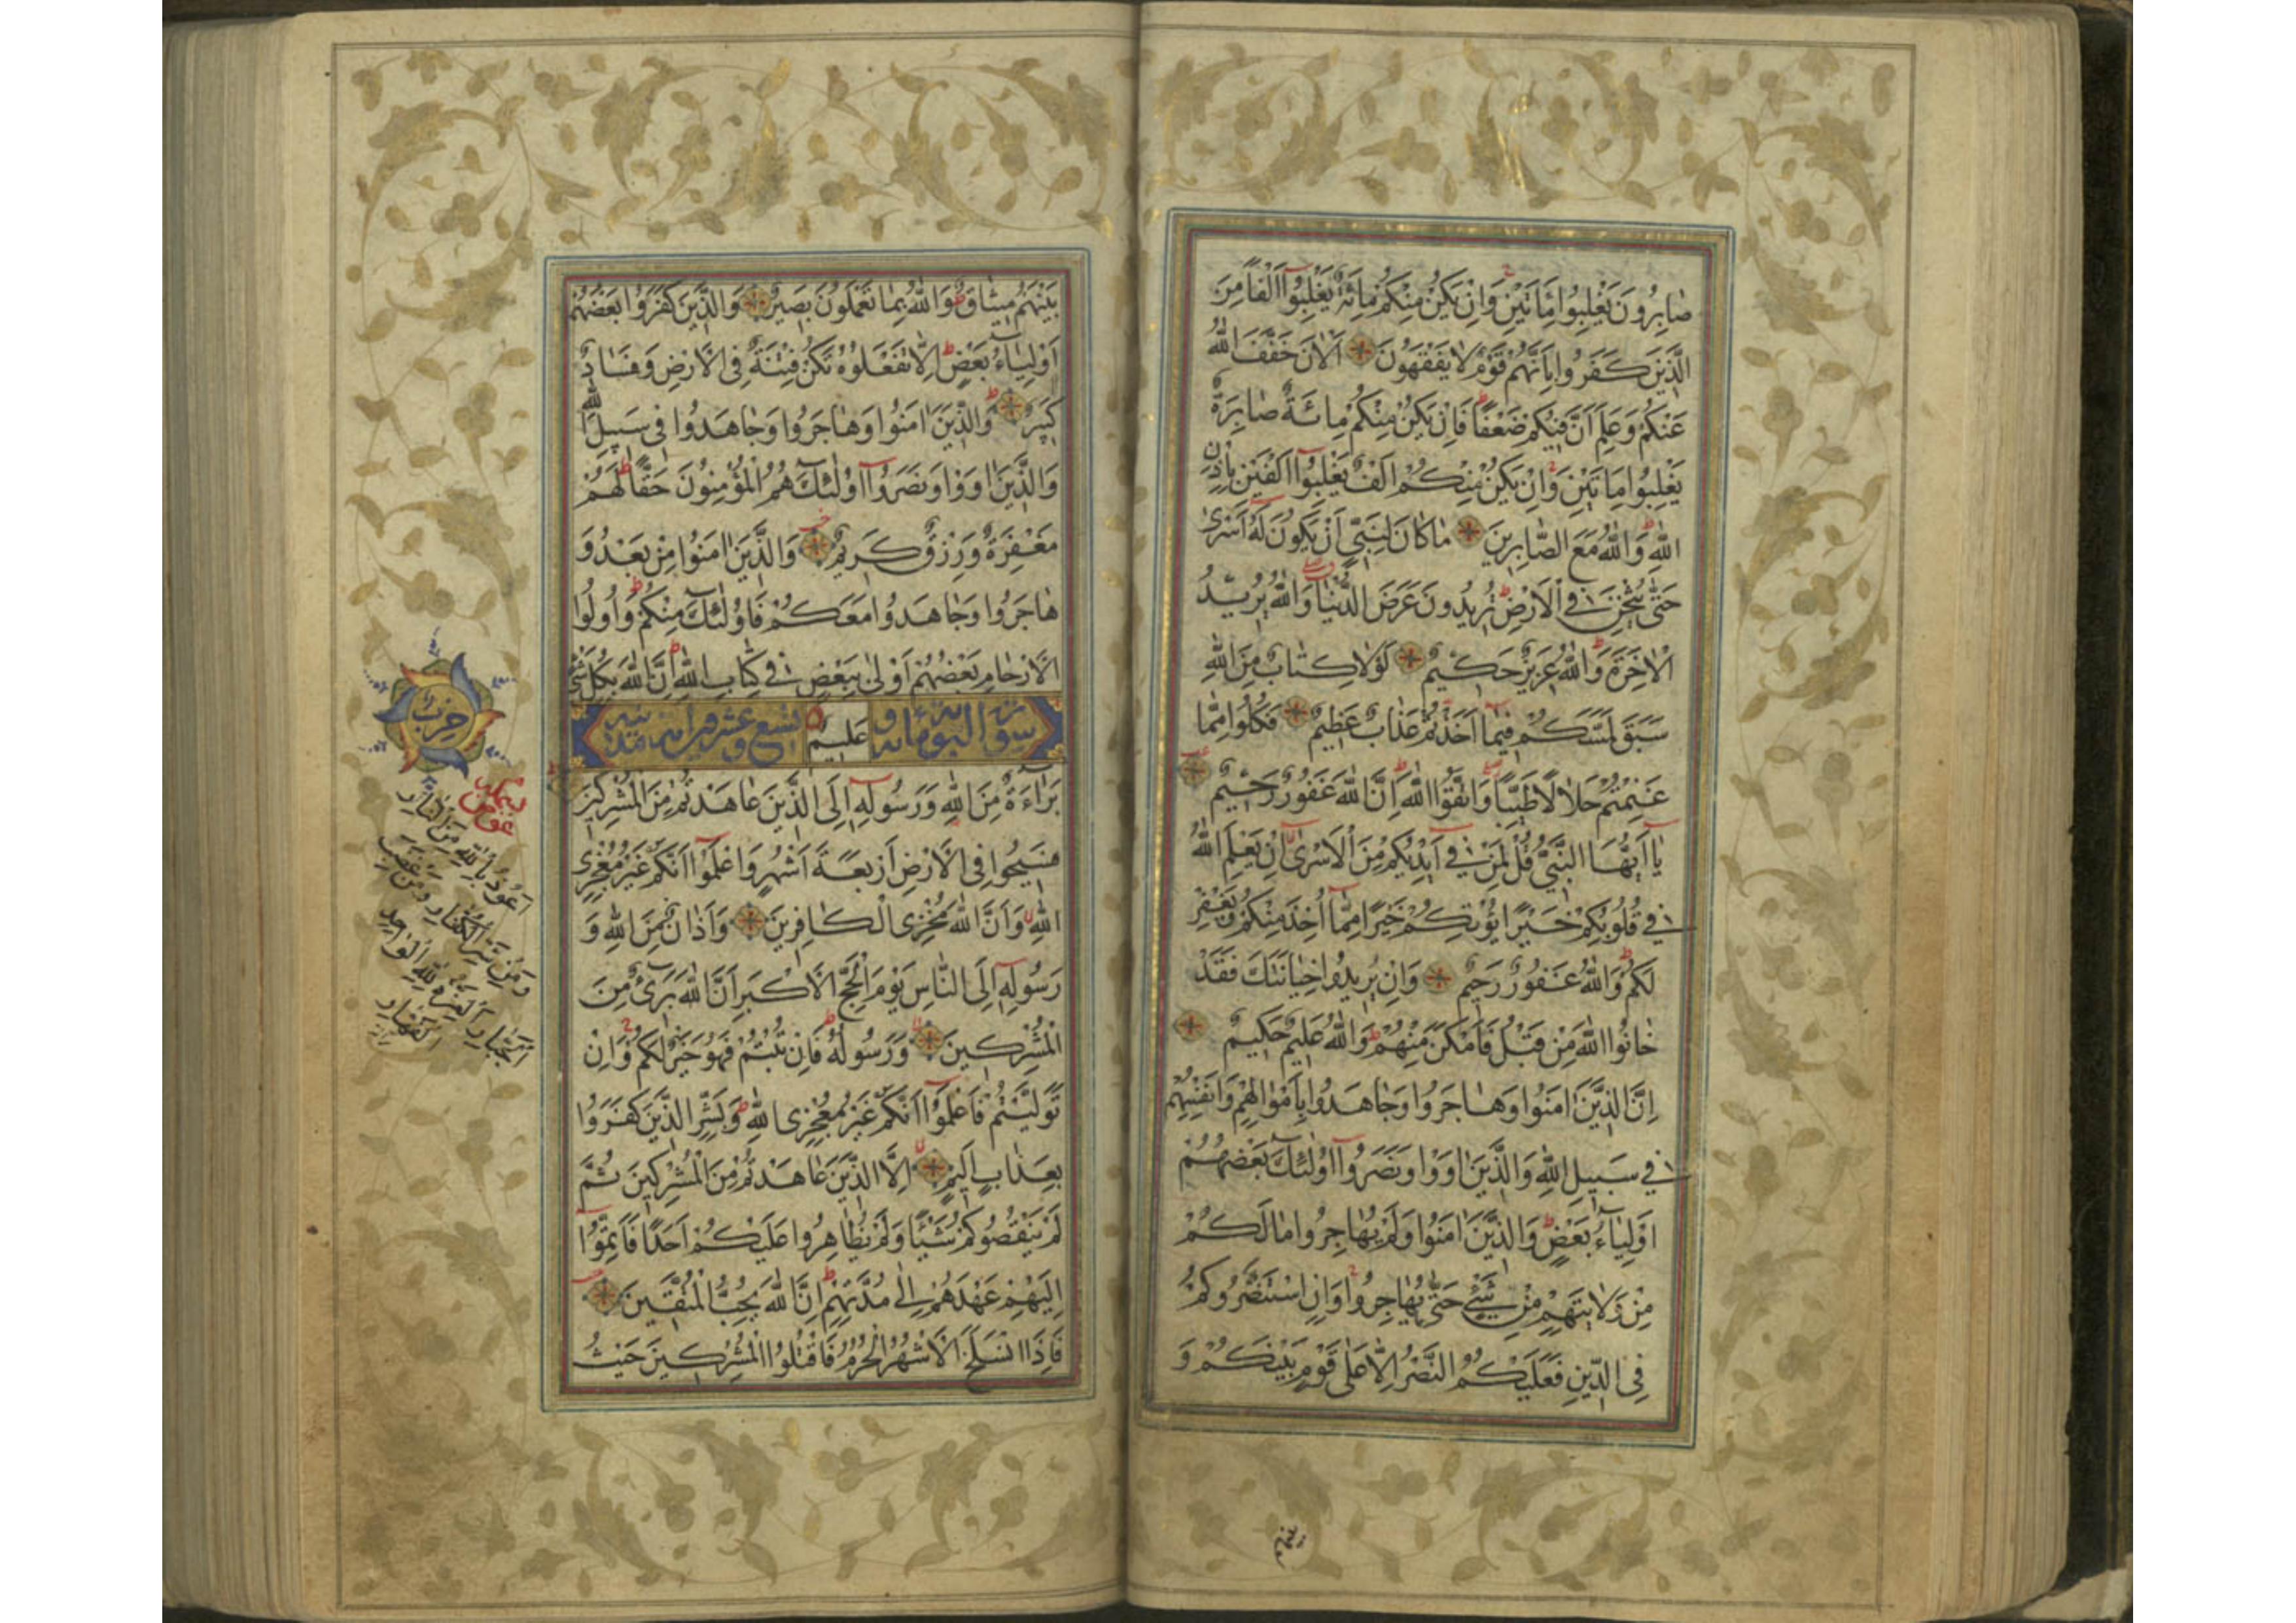 صٰابِرُونَ يَغْلِبُوا مِاَتَيْنِ وَاِنْ يَكُنْ مِنْكُمْ مِائَةٌ يَغْلِبُوآ اَلْفًا مِنَ
الَّذِينَ كَفَرُوا بِاَنَّهُمْ قَوْمٌ لٰا يَفْقَهُونَ اَلْاٰنَ خَفَّفَ اللّٰهُ
عَنْكُمْ وَعَلِمَ اَنَّ فِيكُمْ ضَعْفًا فَاِنْ يَكُنْ مِنْكُمْ مِائَةٌ صٰابِرَةٌ
يَغْلِبُوا مِاَتَيْنِ وَاِنْ يَكُنْ مِنْكُمْ اَلْفٌ يَغْلِبُوآ اَلْفَيْنِ بِاِذْنِ
اللّٰهِ وَاللّٰهُ مَعَ الصّٰابِرِينَ مٰا كٰانَ لِنَبِيٍّ اَنْ يَكُونَ لَهُ اَسْرىٰ
حَتّٰى يُثْخِنَ فِي الْاَرْضِ تُرِيدُونَ عَرَضَ الدُّنْيٰا وَاللّٰهُ يُرِيدُ
الْاٰخِرَةَ وَاللّٰهُ عَزِيزٌ حَكِيمٌ لَوْلٰا كِتٰابٌ مِنَ اللّٰهِ
سَبَقَ لَمَسَّكُمْ فِيمٰا اَخَذْتُمْ عَذٰابٌ عَظِيمٌ فَكُلُوا مِمّٰا
غَنِمْتُمْ حَلٰالًا طَيِّبًا وَاتَّقُوا اللّٰهَ اِنَّ اللّٰهَ غَفُورٌ رَحِيمٌ
يٰا اَيُّهَا النَّبِيُّ قُلْ لِمَنْ فِي اَيْدِيكُمْ مِنَ الْاَسْرىٰ اِنْ يَعْلَمِ اللّٰهُ
فِي قُلُوبِكُمْ خَيْرًا يُؤْتِكُمْ خَيْرًا مِمّٰا اُخِذَ مِنْكُمْ وَيَغْفِرْ
لَكُمْ وَاللّٰهُ غَفُورٌ رَحِيمٌ وَاِنْ يُرِيدُوا خِيٰانَتَكَ فَقَدْ
خٰانُوا اللّٰهَ مِنْ قَبْلُ فَاَمْكَنَ مِنْهُمْ وَاللّٰهُ عَلِيمٌ حَكِيمٌ
اِنَّ الَّذِينَ اٰمَنُوا وَهٰاجَرُوا وَجٰاهَدُوا بِاَمْوٰالِهِمْ وَاَنْفُسِهِمْ
فِي سَبِيلِ اللّٰهِ وَالَّذِينَ اٰوَوْا وَنَصَرُوآ اُولٰئِكَ بَعْضُهُمْ
اَوْلِيٰاءُ بَعْضٍ وَالَّذِينَ اٰمَنُوا وَلَمْ يُهٰاجِرُوا مٰا لَكُمْ
مِنْ وَلٰايَتِهِمْ مِنْ شَيْءٍ حَتّٰى يُهٰاجِرُوا وَاِنِ اسْتَنْصَرُوكُمْ
فِي الدِّينِ فَعَلَيْكُمُ النَّصْرُ اِلّٰا عَلٰى قَوْمٍ بَيْنَكُمْ وَ
بينهم
بَيْنَهُمْ مِيثٰاقٌ وَاللّٰهُ بِمٰا تَعْمَلُونَ بَصِيرٌ وَالَّذِينَ كَفَرُوا بَعْضُهُمْ
اَوْلِيٰاءُ بَعْضٍ اِلّٰا تَفْعَلُوهُ تَكُنْ فِتْنَةٌ فِي الْاَرْضِ وَفَسٰادٌ
كَبِيرٌ وَالَّذِينَ اٰمَنُوا وَهٰاجَرُوا وَجٰاهَدُوا فِي سَبِيلِ اللّٰهِ
وَالَّذِينَ اٰوَوْا وَنَصَرُوآ اُولٰئِكَ هُمُ الْمُؤْمِنُونَ حَقًّا لَهُمْ
مَغْفِرَةٌ وَرِزْقٌ كَرِيمٌ وَالَّذِينَ اٰمَنُوا مِنْ بَعْدُ وَ
هٰاجَرُوا وَجٰاهَدُوا مَعَكُمْ فَاُولٰئِكَ مِنْكُمْ وَاُولُوا
الْاَرْحٰامِ بَعْضُهُمْ اَوْلٰى بِبَعْضٍ فِي كِتٰابِ اللّٰهِ اِنَّ اللّٰهَ بِكُلِّ شَيْءٍ
سورة التوبة مائة و عَلِيمٌ تسع وعشرون اية مدنية
بَرٰاءَةٌ مِنَ اللّٰهِ وَرَسُولِهِ اِلَى الَّذِينَ عٰاهَدْتُمْ مِنَ الْمُشْرِكِينَ
فَسِيحُوا فِي الْاَرْضِ اَرْبَعَةَ اَشْهُرٍ وَاعْلَمُوآ اَنَّكُمْ غَيْرُ مُعْجِزِي
اللّٰهِ وَاَنَّ اللّٰهَ مُخْزِي الْكٰافِرِينَ وَاَذٰانٌ مِنَ اللّٰهِ وَ
رَسُولِهِ اِلَى النّٰاسِ يَوْمَ الْحَجِّ الْاَكْبَرِ اَنَّ اللّٰهَ بَرِيءٌ مِنَ
الْمُشْرِكِينَ وَرَسُولُهُ فَاِنْ تُبْتُمْ فَهُوَ خَيْرٌ لَكُمْ وَاِنْ
تَوَلَّيْتُمْ فَاعْلَمُوآ اَنَّكُمْ غَيْرُ مُعْجِزِي اللّٰهِ وَبَشِّرِ الَّذِينَ كَفَرُوا
بِعَذٰابٍ اَلِيمٍ اِلَّا الَّذِينَ عٰاهَدْتُمْ مِنَ الْمُشْرِكِينَ ثُمَّ
لَمْ يَنْقُصُوكُمْ شَيْئًا وَلَمْ يُظٰاهِرُوا عَلَيْكُمْ اَحَدًا فَاَتِمُّوآ
اِلَيْهِمْ عَهْدَهُمْ اِلٰى مُدَّتِهِمْ اِنَّ اللّٰهَ يُحِبُّ الْمُتَّقِينَ
فَاِذَا انْسَلَخَ الْاَشْهُرُ الْحُرُمُ فَاقْتُلُوا الْمُشْرِكِينَ حَيْثُ
حزب
اَعُوذُ بِاللّٰهِ مِنَ النّٰارِ
وَمِنْ شَرِّ الْكُفّٰارِ وَمِنْ غَضَبِ
الْجَبّٰارِ اَلْعِزَّةُ لِلّٰهِ الْوٰاحِدِ
الْقَهّٰارِ